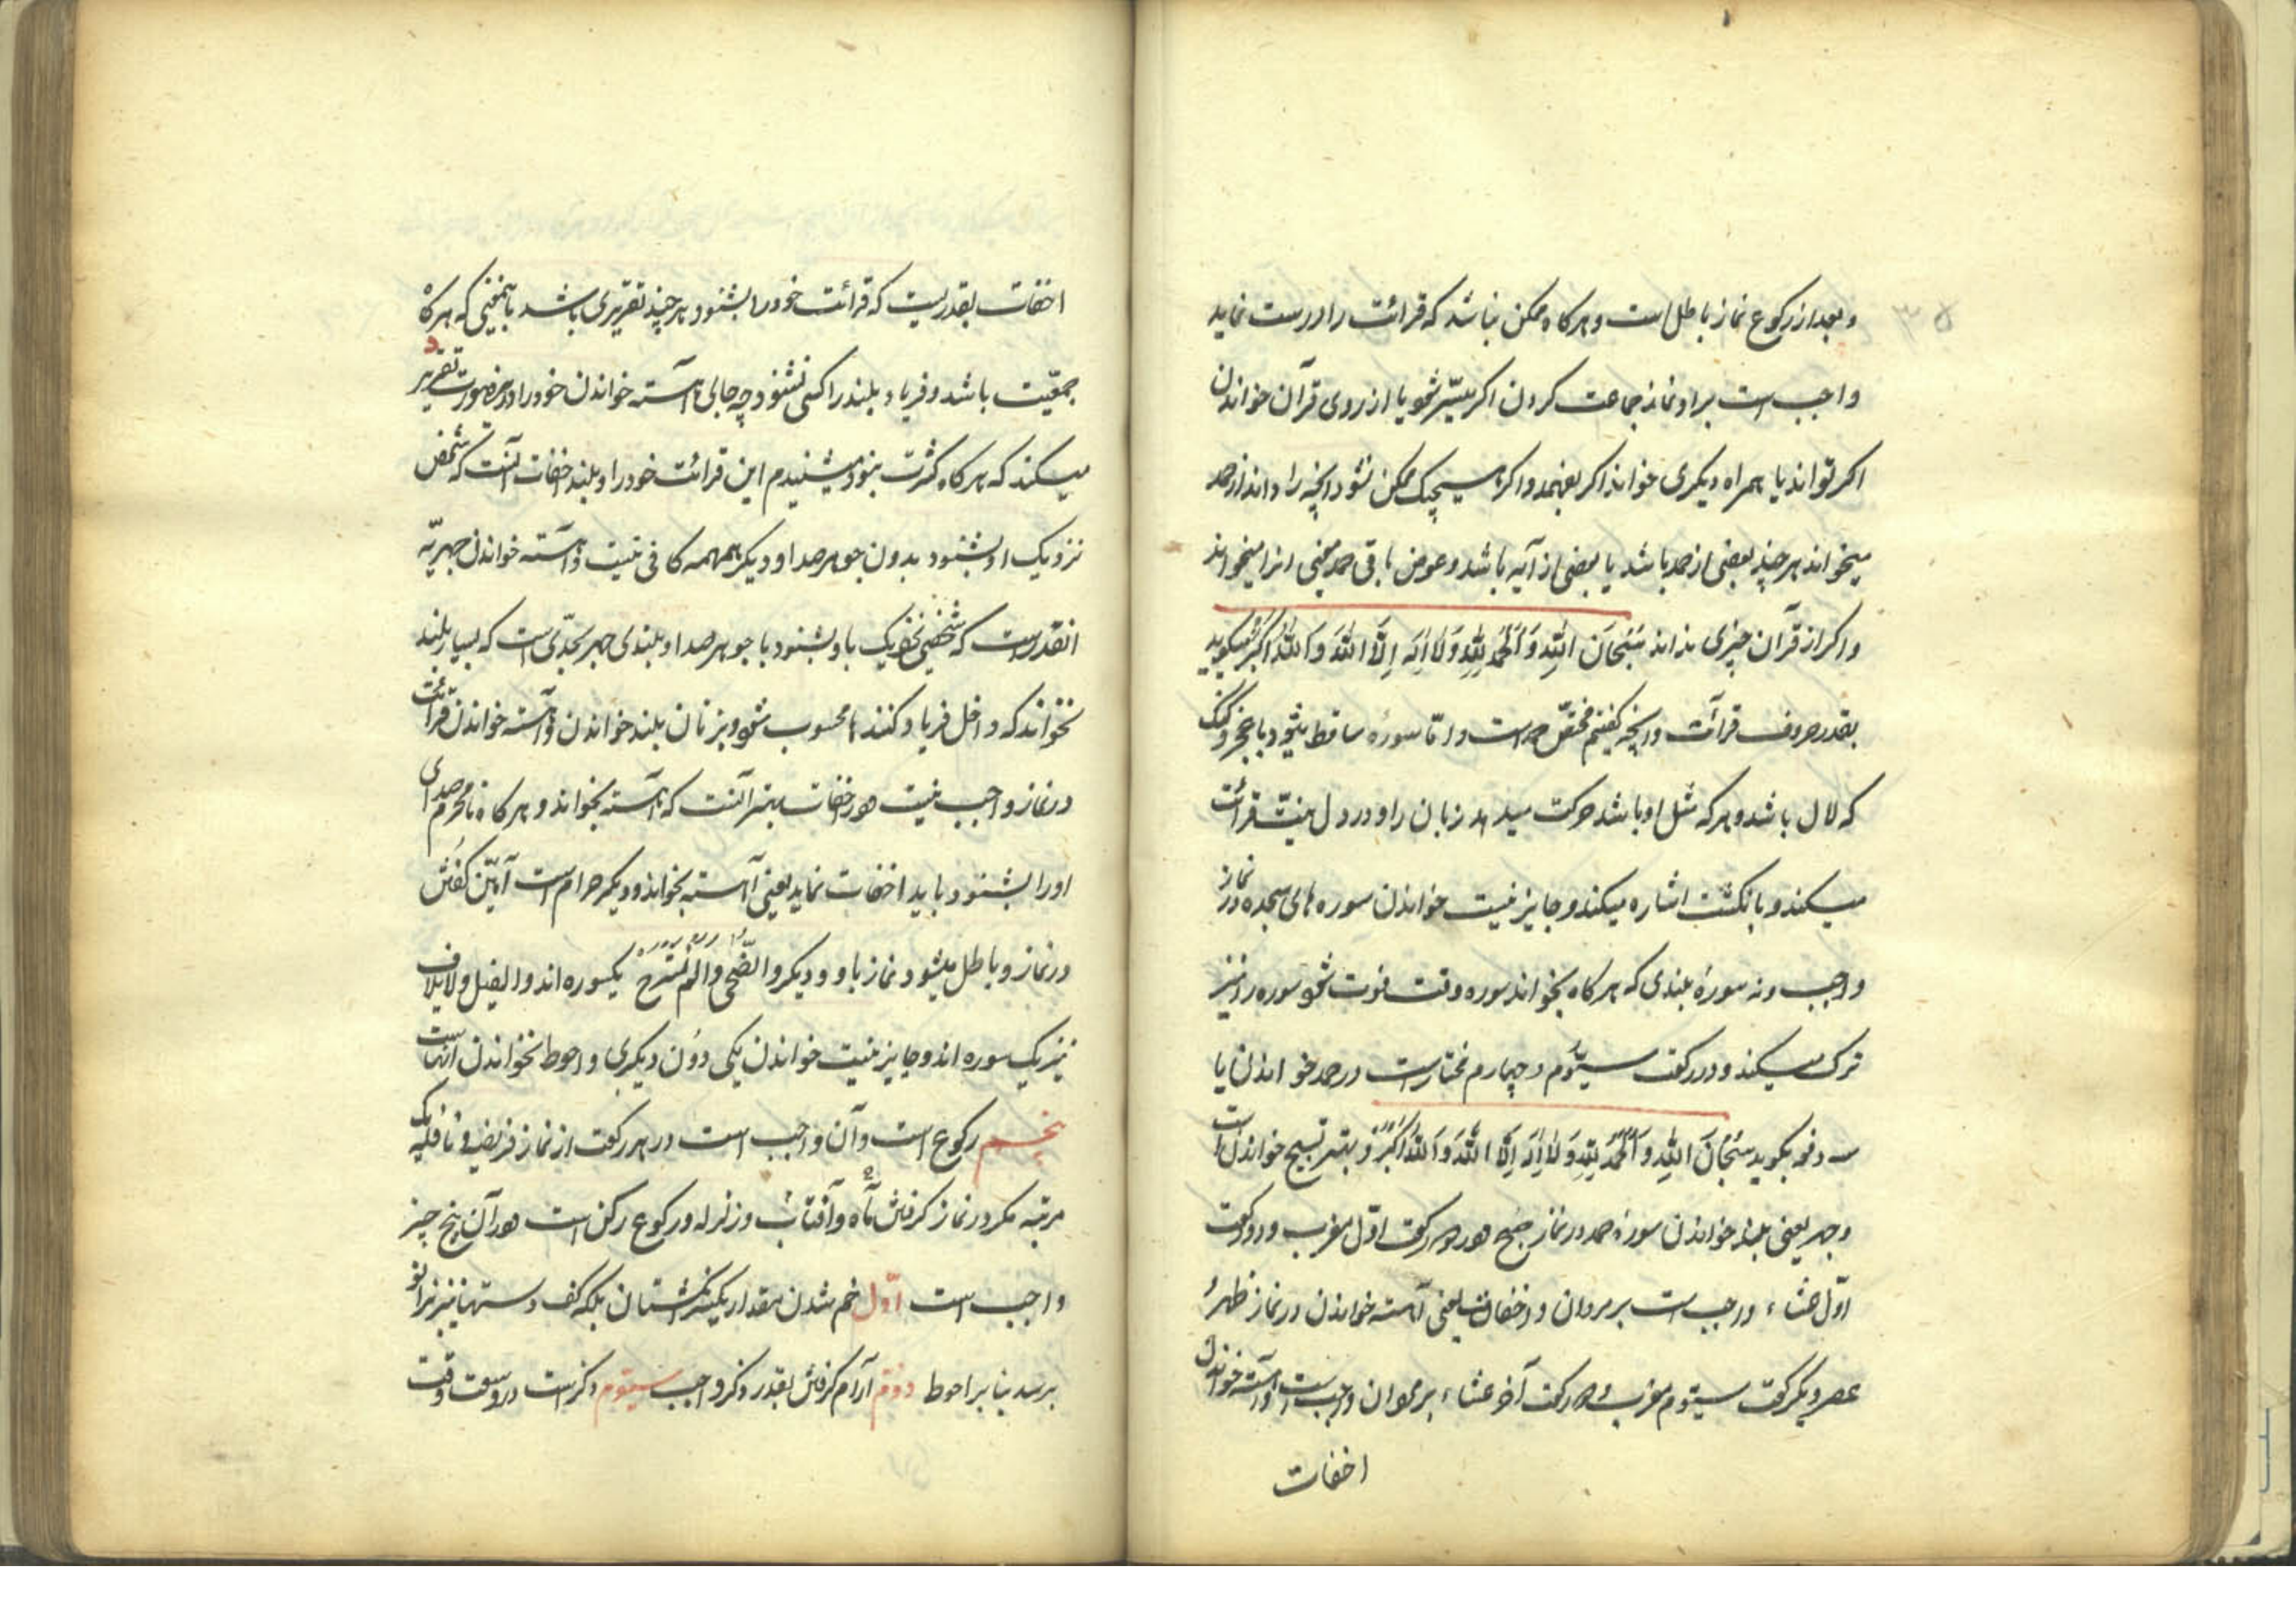 ۳۵
و بعد از رکوع نماز باطل است و هر کاه ممکن نباشد که قرائت را درست نماید
واجب است بر او نماز جماعت کردن اکر میسّر شود یا از روی قرآن خواندن
اکر تواند یا همراه دیکری خواند اکر بفهمد و اکر هیچیک ممکن نشود آنچه را داند از حمد
میخواند هر چند بعضی از حمد باشد یا بعضی از آیه باشد و عوض باقی حمد چیزی از آن میخواند
و اکر از قرآن چیزی نداند سُبْحَانَ اللّٰهِ وَ الْحَمْدُ لِلّٰهِ وَ لَا اِلٰهَ اِلَّا اللّٰهُ وَ اللّٰهُ اَکْبَرُ میکوید
بقدر حروف قرآئت و آنچه کفتیم مختصّ حمد است و امّا سوره ساقط میشود با عجز و کنک
که لال باشد و هر که مثل او باشد حرکت میدهد زبان را و در دل نیّت قرائت
میکند و بانکشت اشاره میکند و جایز نیست خواندن سوره های سجده در نماز
واجب و نه سورهٔ بلندی که هر کاه بخواند سوره وقت فوت شود سوره را نیز
ترک میکند و در رکعت سیّوم و چهارم مختار است در حمد خواندن یا
سه دفعه بکوید سُبْحَانَ اللّٰهِ وَ الْحَمْدُ لِلّٰهِ وَ لَا اِلٰهَ اِلَّا اللّٰهُ وَ اللّٰهُ اَکْبَرُ و بهتر تسبیح خواندن است
و جهر یعنی بلند خواندن سوره حمد در نماز صبح و در دو رکعت اوّل مغرب و دو رکعت
اوّل عشاء واجب است بر مردان و اخفات یعنی آهسته خواندن در نماز ظهر و
عصر و یکرکعت سیّوم مغرب و دو رکعت آخر عشاء بر مردان واجب است و آهسته خواندن
اخفات
اخفات بقدریست که قرائت خود را بشنود هر چند تقدیری باشد باینمعنی که هر کاه
جمعیّت باشد و فریاد بلند را کسی نشنود چه جای آهسته خواندن خود را در این صورت تقدیر
میکند که هر کاه کثرت نبود میشنیدم این قرائت خود را و بلند اخفات آنست که شخص
نزدیک او بشنود بدون جوهر صدا و دیکر همهمه کافی نیست و آهسته خواندن جهریّه
آنقدر است که شخصی نزدیک باو بشنود با جوهر صدا و بلندی جهر بحدّی است که بسیار بلند
نخواند که داخل فریاد کننده محسوب شود و بر زنان بلند خواندن و آهسته خواندن قرائت
در نماز واجب نیست و در اخفات بهتر آنست که آهسته بخواند و هر کاه نامحرم صدای
او را بشنود باید اخفات نماید یعنی آهسته بخواند و دیکر حرام است آمین کفتن
در نماز و باطل میشود نماز باو و دیکر والضّحی و اَلَمْ نَشْرَحْ یکسوره اند و الفیل و لایلاف
نیز یک سوره اند و جایز نیست خواندن یکی دوُن دیکری و احوط نخواندن آنهاست
پنجم رکوع است و آن واجب است در هر رکعت از نماز فریضه و نافله یک
مرتبه مکر در نماز کرفتن ماه و آفتاب و زلزله و رکوع رکن است و در آن پنج چیز
واجب است اوّل خم شدن بمقدار یکه انکشتان بلکه کف دستها نیز بزانو
برسد بنا بر احوط دویّم آرام کرفتن بقدر ذکر واجب سیّوم ذکر است در وسعت وقت